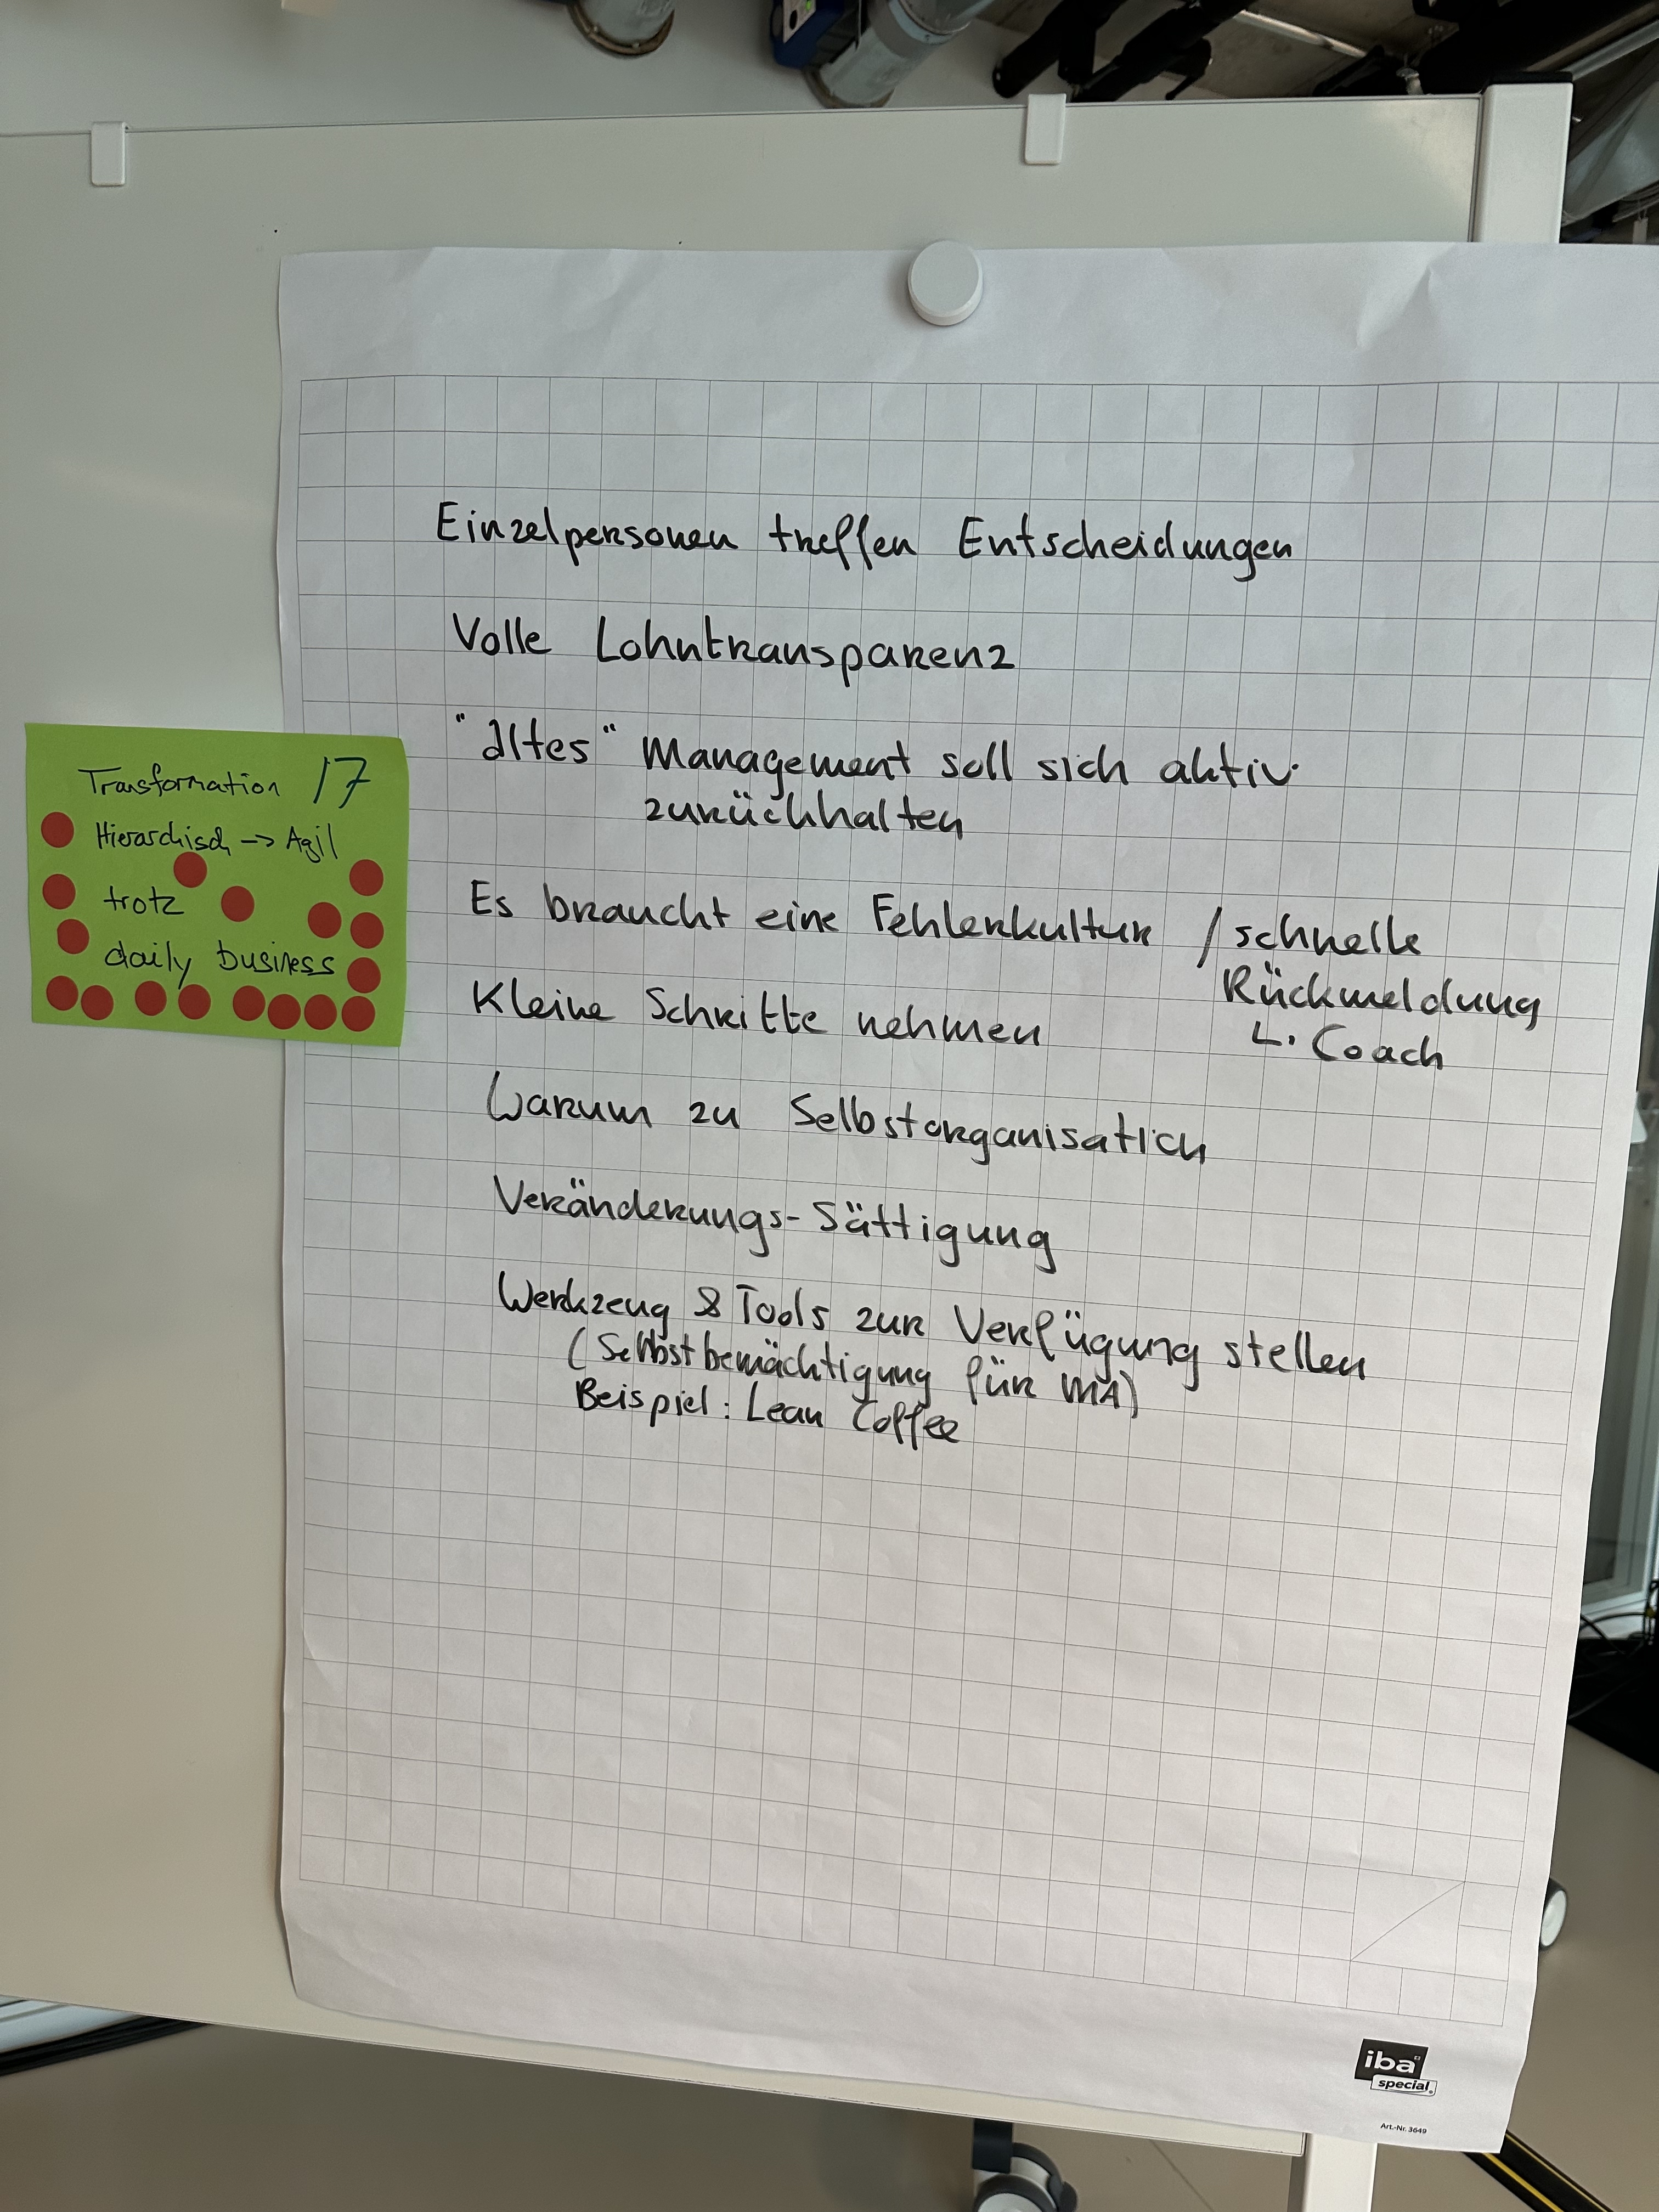 Transformation 17
Hierarchisch -> Agil
trotz
daily business
Einzelpersonen treffen Entscheidungen
Volle Lohntransparenz
"altes" Management soll sich aktiv
zurückhalten
Es braucht eine Fehlerkultur / schnelle
Rückmeldung
L. Coach
Kleine Schritte nehmen
Warum zu Selbstorganisation
Veränderungs-Sättigung
Werkzeug & Tools zur Verfügung stellen
(Selbstbemächtigung für MA)
Beispiel: Lean Coffee
iba
special
Art.-Nr. 3649